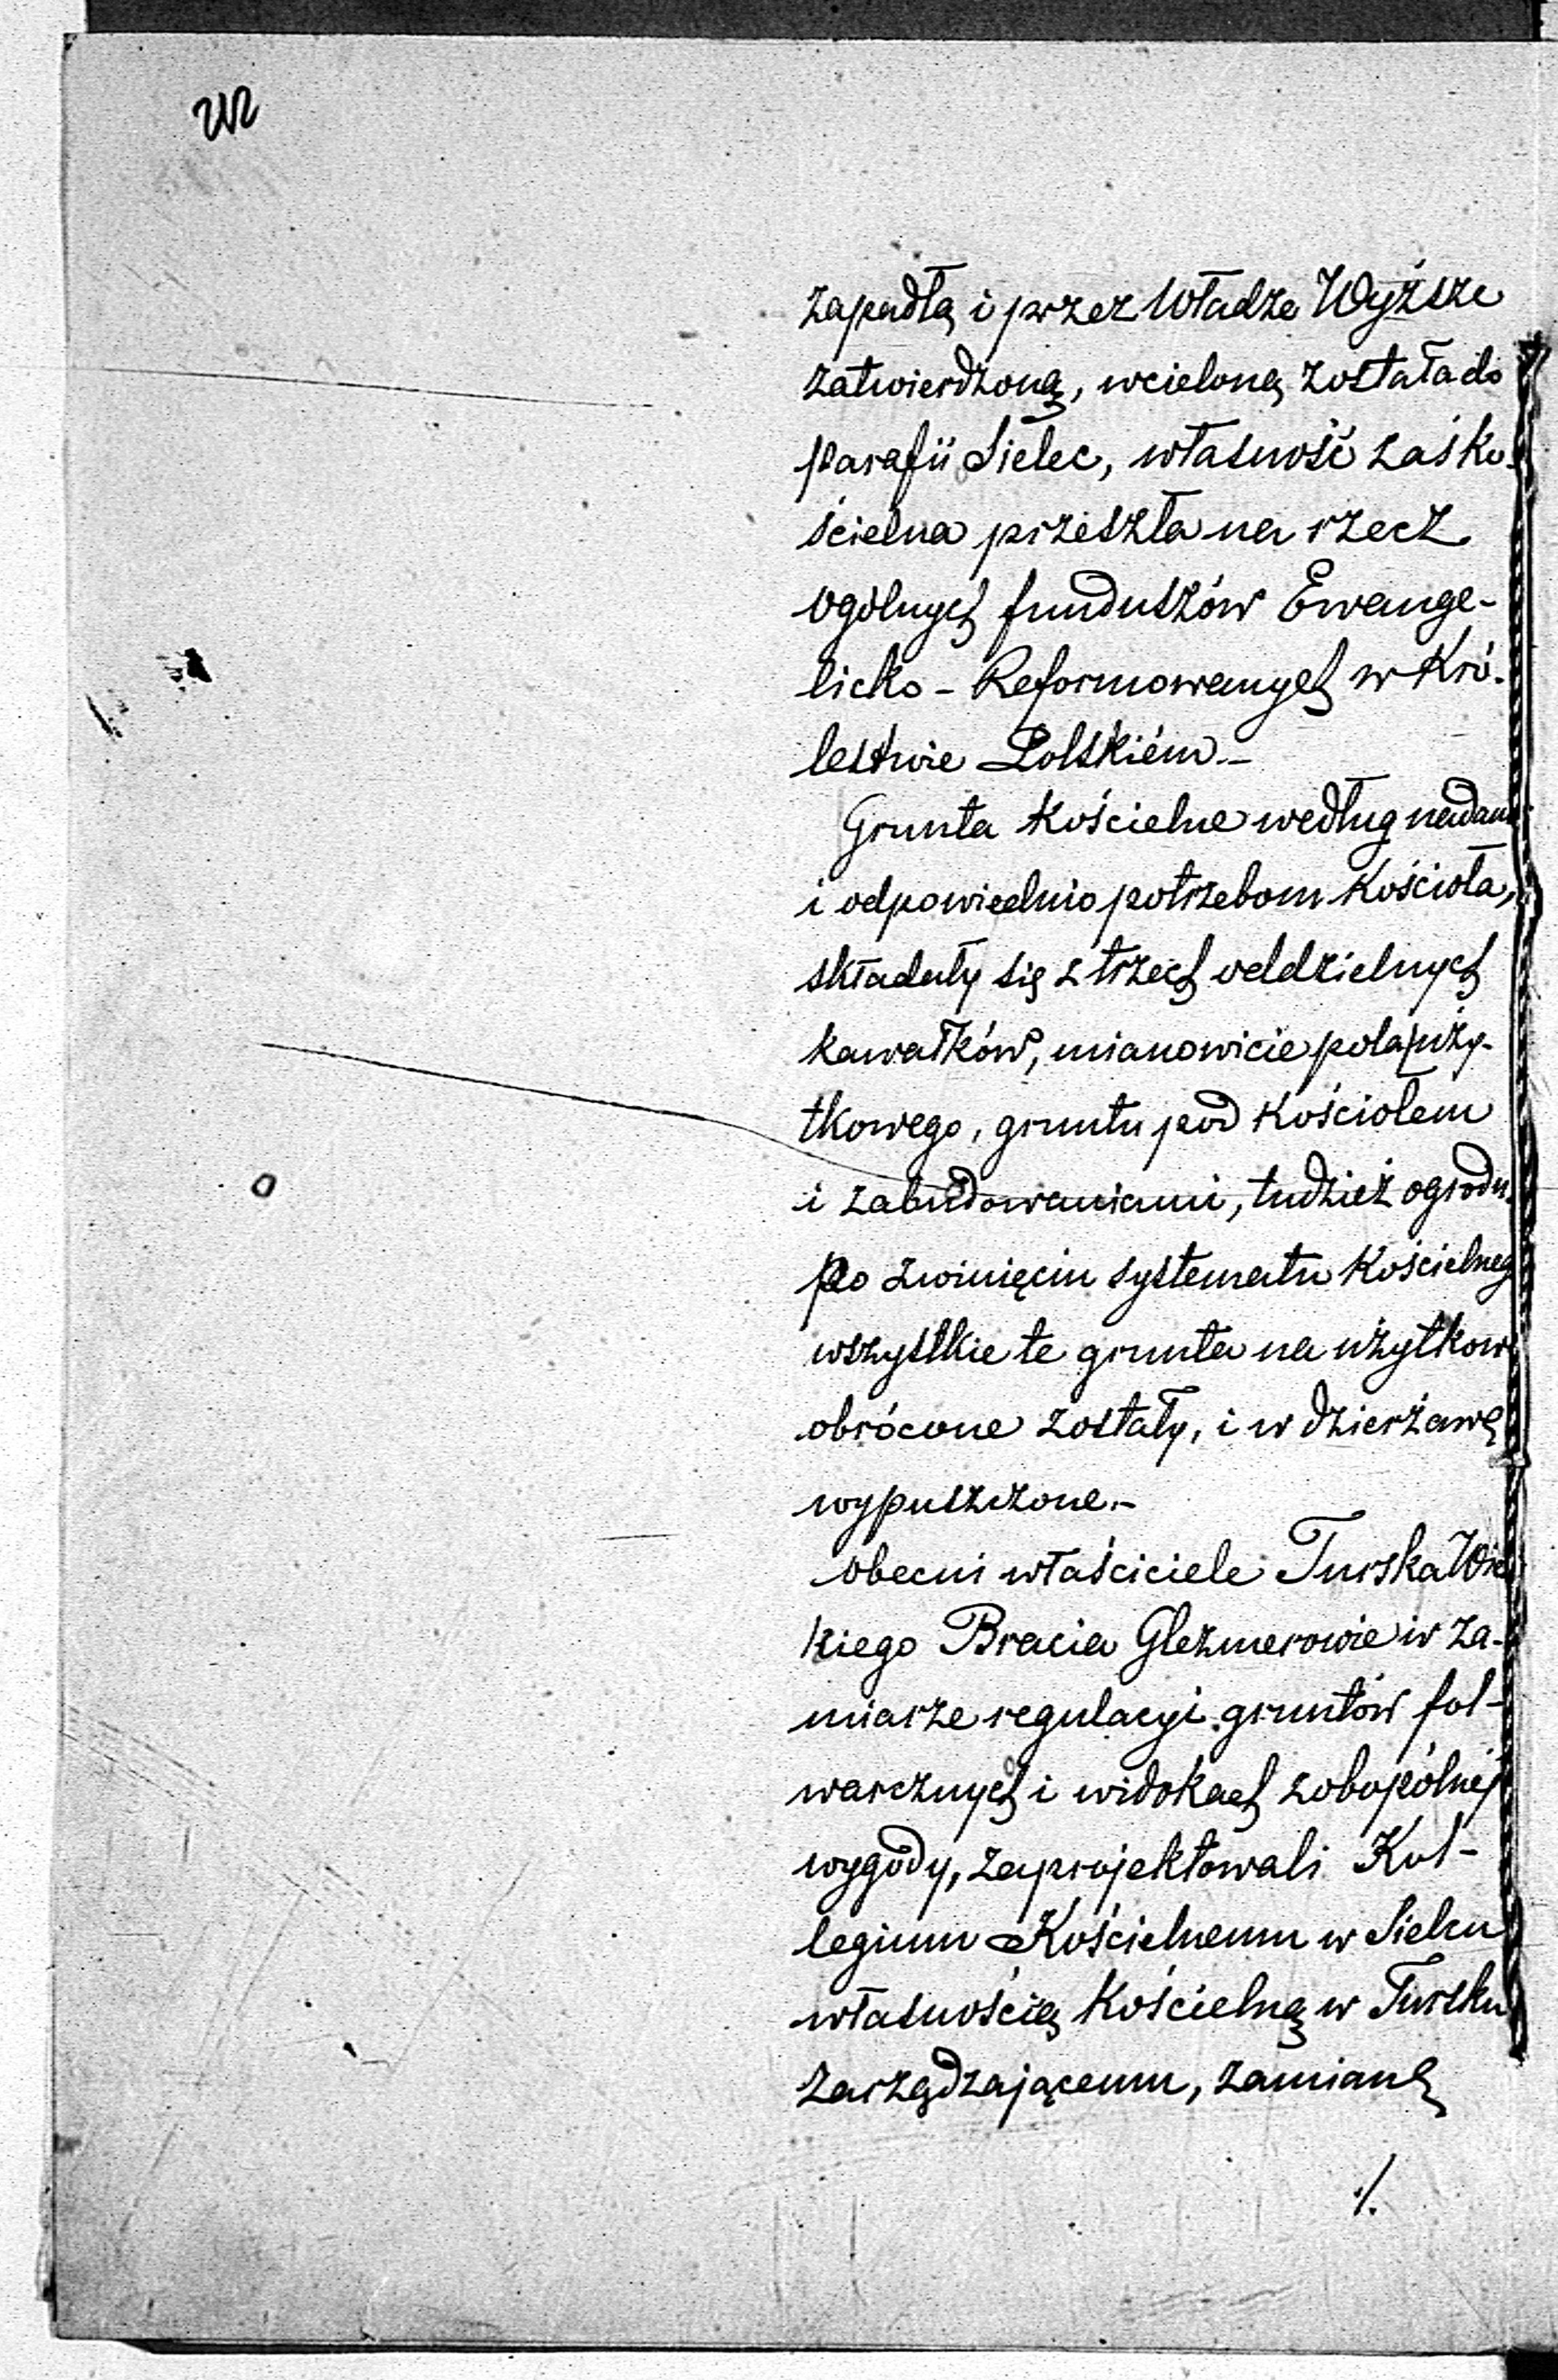 zapadłą i przez Władze Wyższe
zatwierdzoną, wcieloną została do
parafii Sielec, własność zaś ko-
ścielna przeszła na rzecz
ogólnych funduszów Ewange-
licko - Reformowanych w Kró-
lestwie Polskiém.-
Grunta Kościelne według nadań
i odpowiednio potrzebom Kościoła,
składały się z trzech oddzielnych
kawałków, mianowicie pola uży-
tkowego, gruntu pod Kościołem
i zabudowaniami, tudzież ogrodu.
Po zwinięciu systematu Kościelneg
wszystkie te grunta na użytkow
obrócone zostały, i w dzierżawę
wypuszczone.-
Obecni właściciele Turska Wiel
kiego Bracia Glezmerowie w za-
miarze regulacyi gruntów fol-
warcznych i widokach zobopólnéj
wygody, zaprojektowali Kol-
legium Kościelnemu w Sielcu
własnością Kościelną w Tursku
zarządzającemu, zamianę
./.